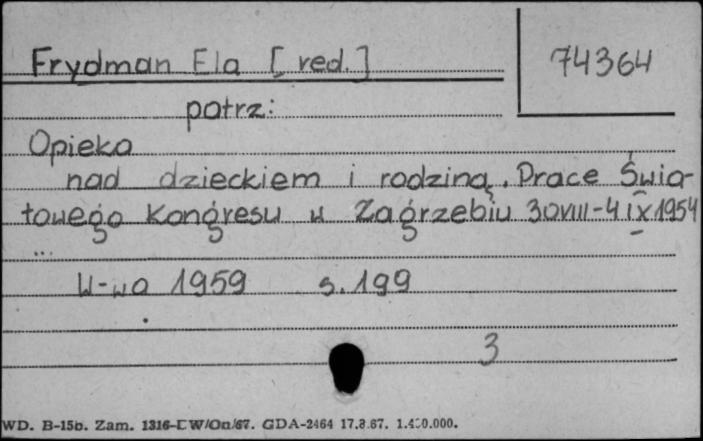 Frydman Ela [red.]
74364
patrz:
Opieka
nad dzieckiem i rodziną. Prace Świa-
towego Kongresu w Zagrzebiu 30VIII-4IX1954
...
W-wa 1959 s. 199
3
WD. B-15b. Zam. GDA-2464 17.8.67.